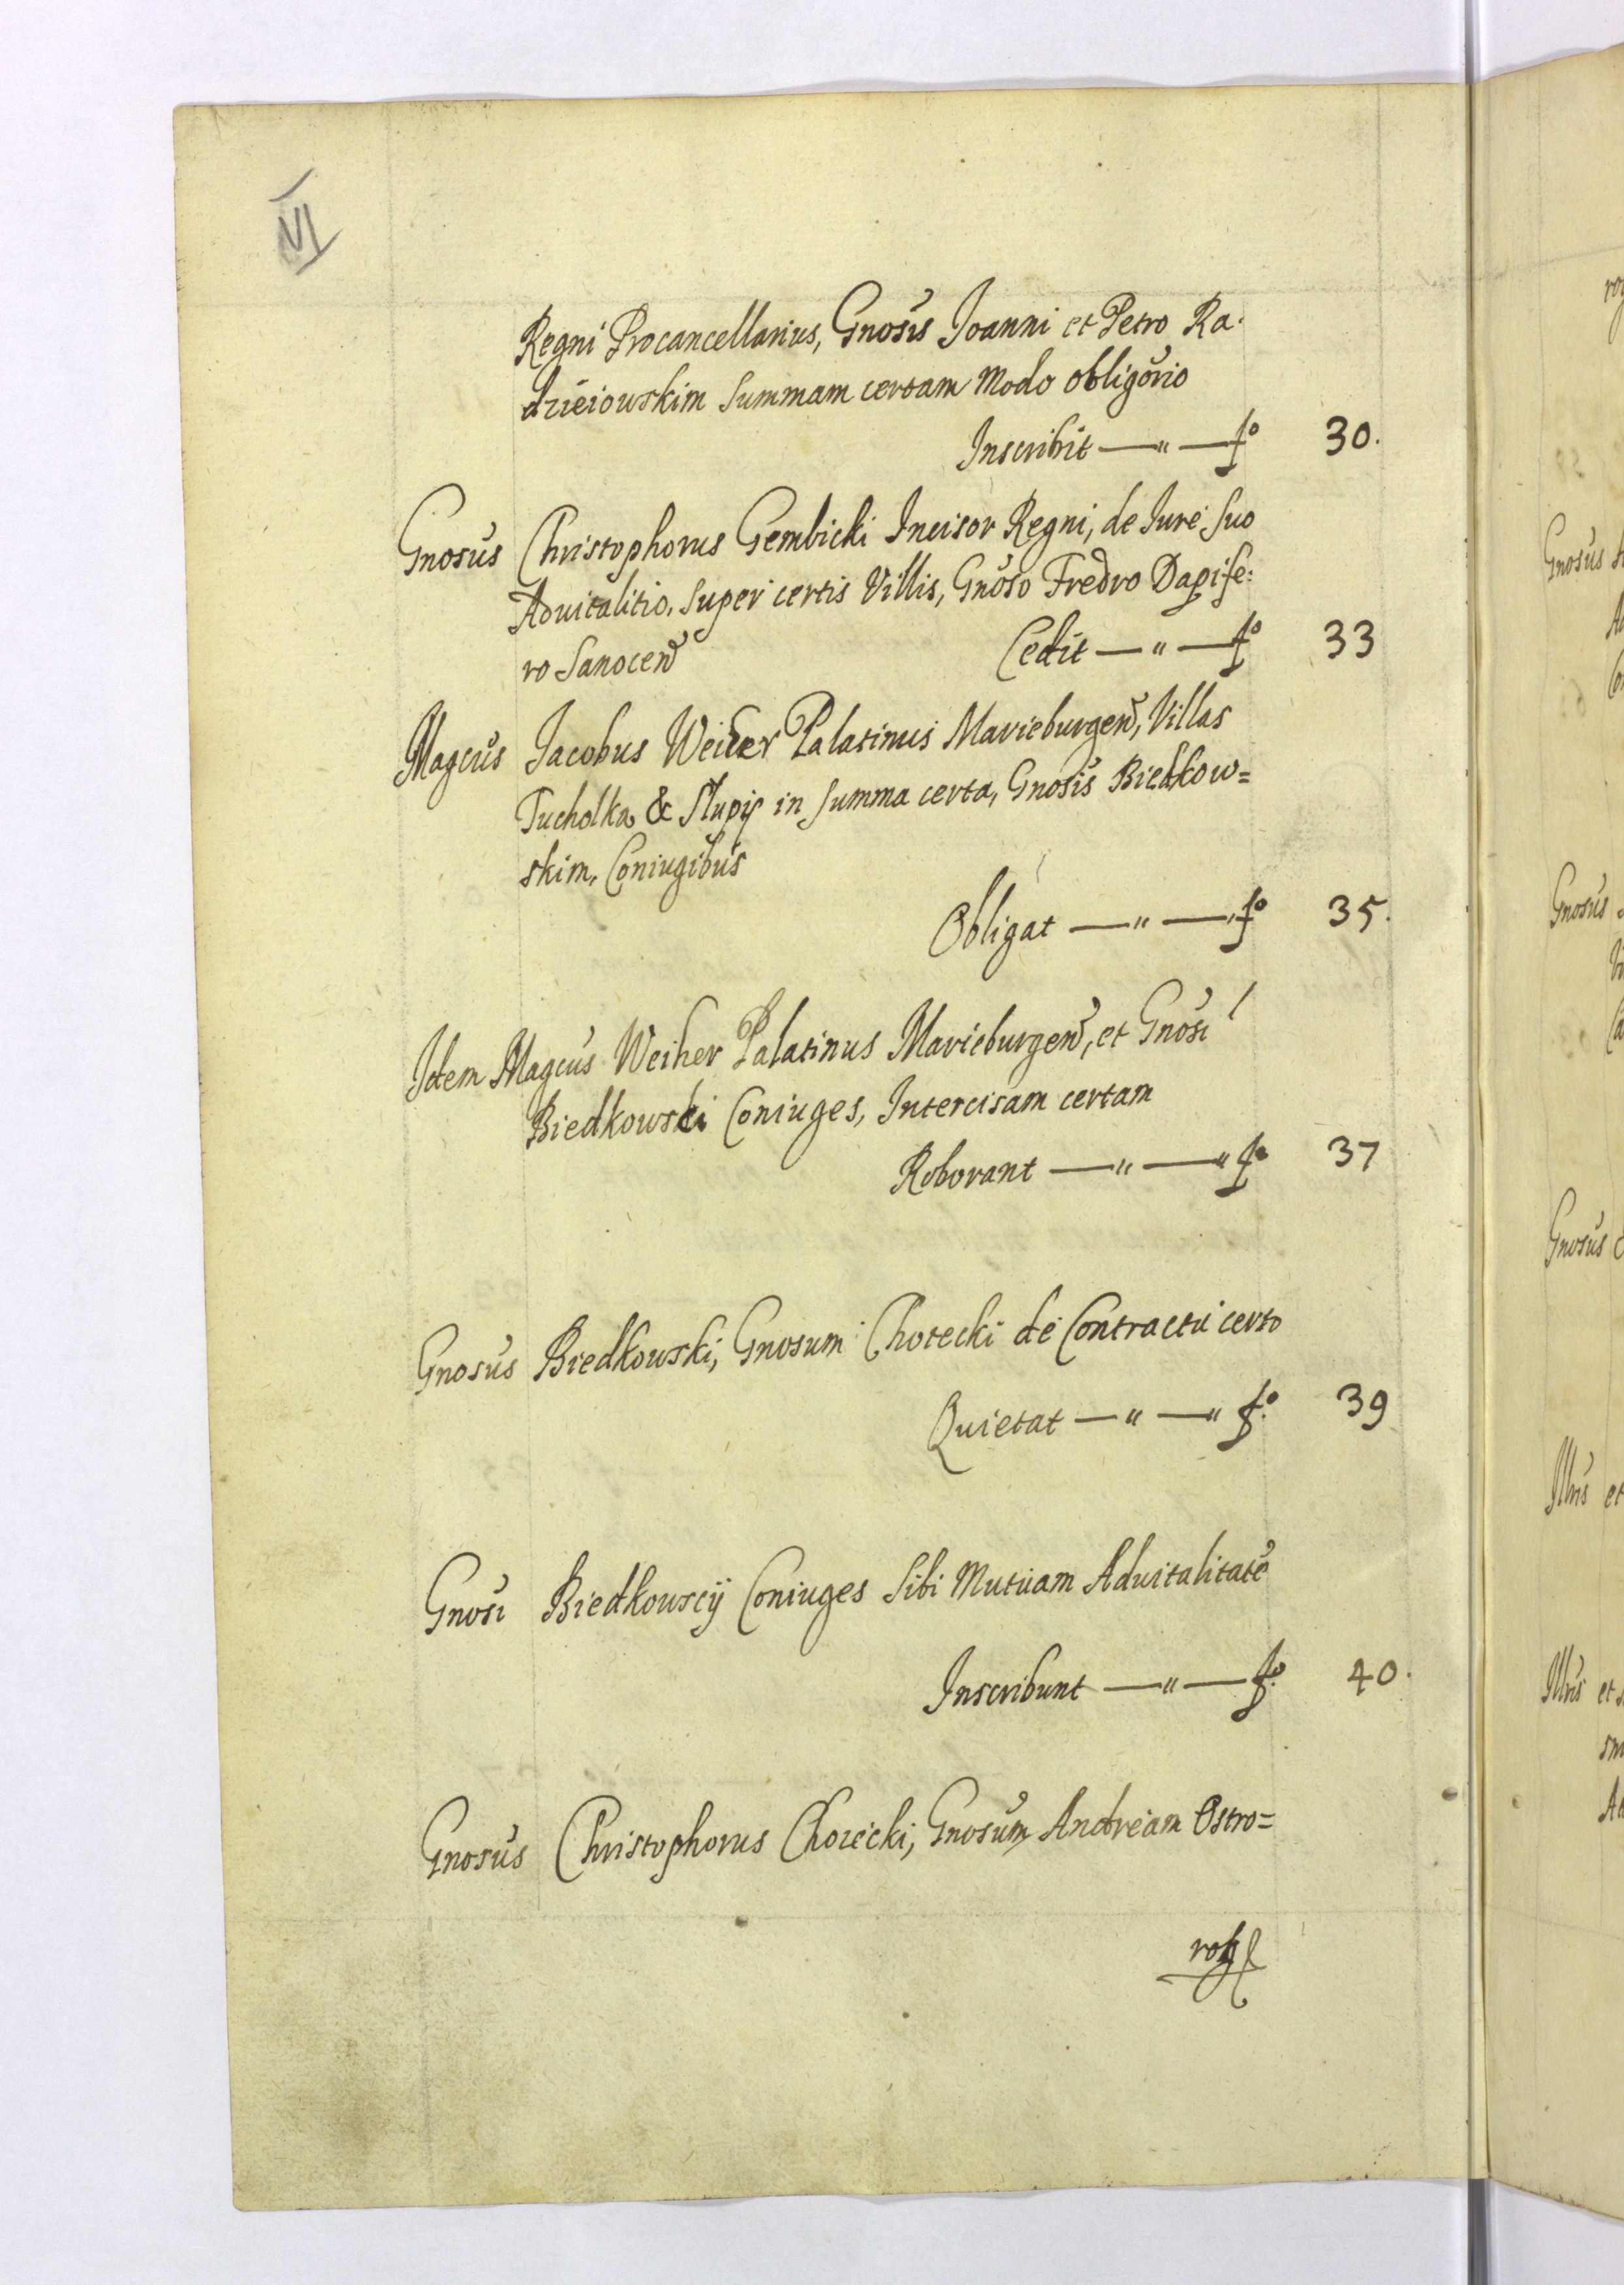 VI
Regni Procancellarius, Gnosis Joanni et Petro Ra-
dzieiowskim Summam certam Modo obligorio
Inscribit —"— fo 30.
Gnosus Christophorus Gembicki Incisor Regni, de Jure suo
Advitalitio, super certis Villis, Gnoso Fredro Dapife:
ro Sanocen Cedit —"— fo 33
Magcus Jacobus Weiher Palatinus Marieburgen, Villas
Tucholka & Slupij in summa certa, Gnosis Biedkow=
skim, Coniugibus
Obligat —"— fo 35.
Idem Magcus Weiher Palatinus Marieburgen, et Gnosi
Biedkowski Coniuges, Intercisam certam
Roborant —"—" fo 37
Gnosus Biedkowski, Gnosum Chotecki de Contractu certo
Quietat —"—" fo 39
Gnosi Biedkowscij Coniuges Sibi Mutuam Advitalitate
Inscribunt —"— fo 40.
Gnosus Christophorus Chotecki, Gnosum Andream Ostro=
Gnosus
Gnosus
Gnosus
Illris et
Illris et